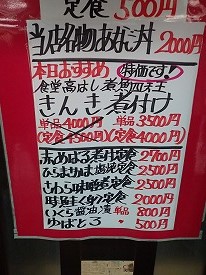 定食 500円
当店名物あなご丼 2000円
本日おすすめ 特価です!
食堂高はし煮魚四天王
きんき煮付け
単品 4000円 単品 3500円
(定食4500円)(定食4000円)
赤めばる煮付定食 2700円
ひらまさかま塩焼定食 2500円
さわら味噌煮定食 2500円
時鮭くわ定食 2000円
いくら醤油漬 単品 800円
ゆばとろ 〃 500円